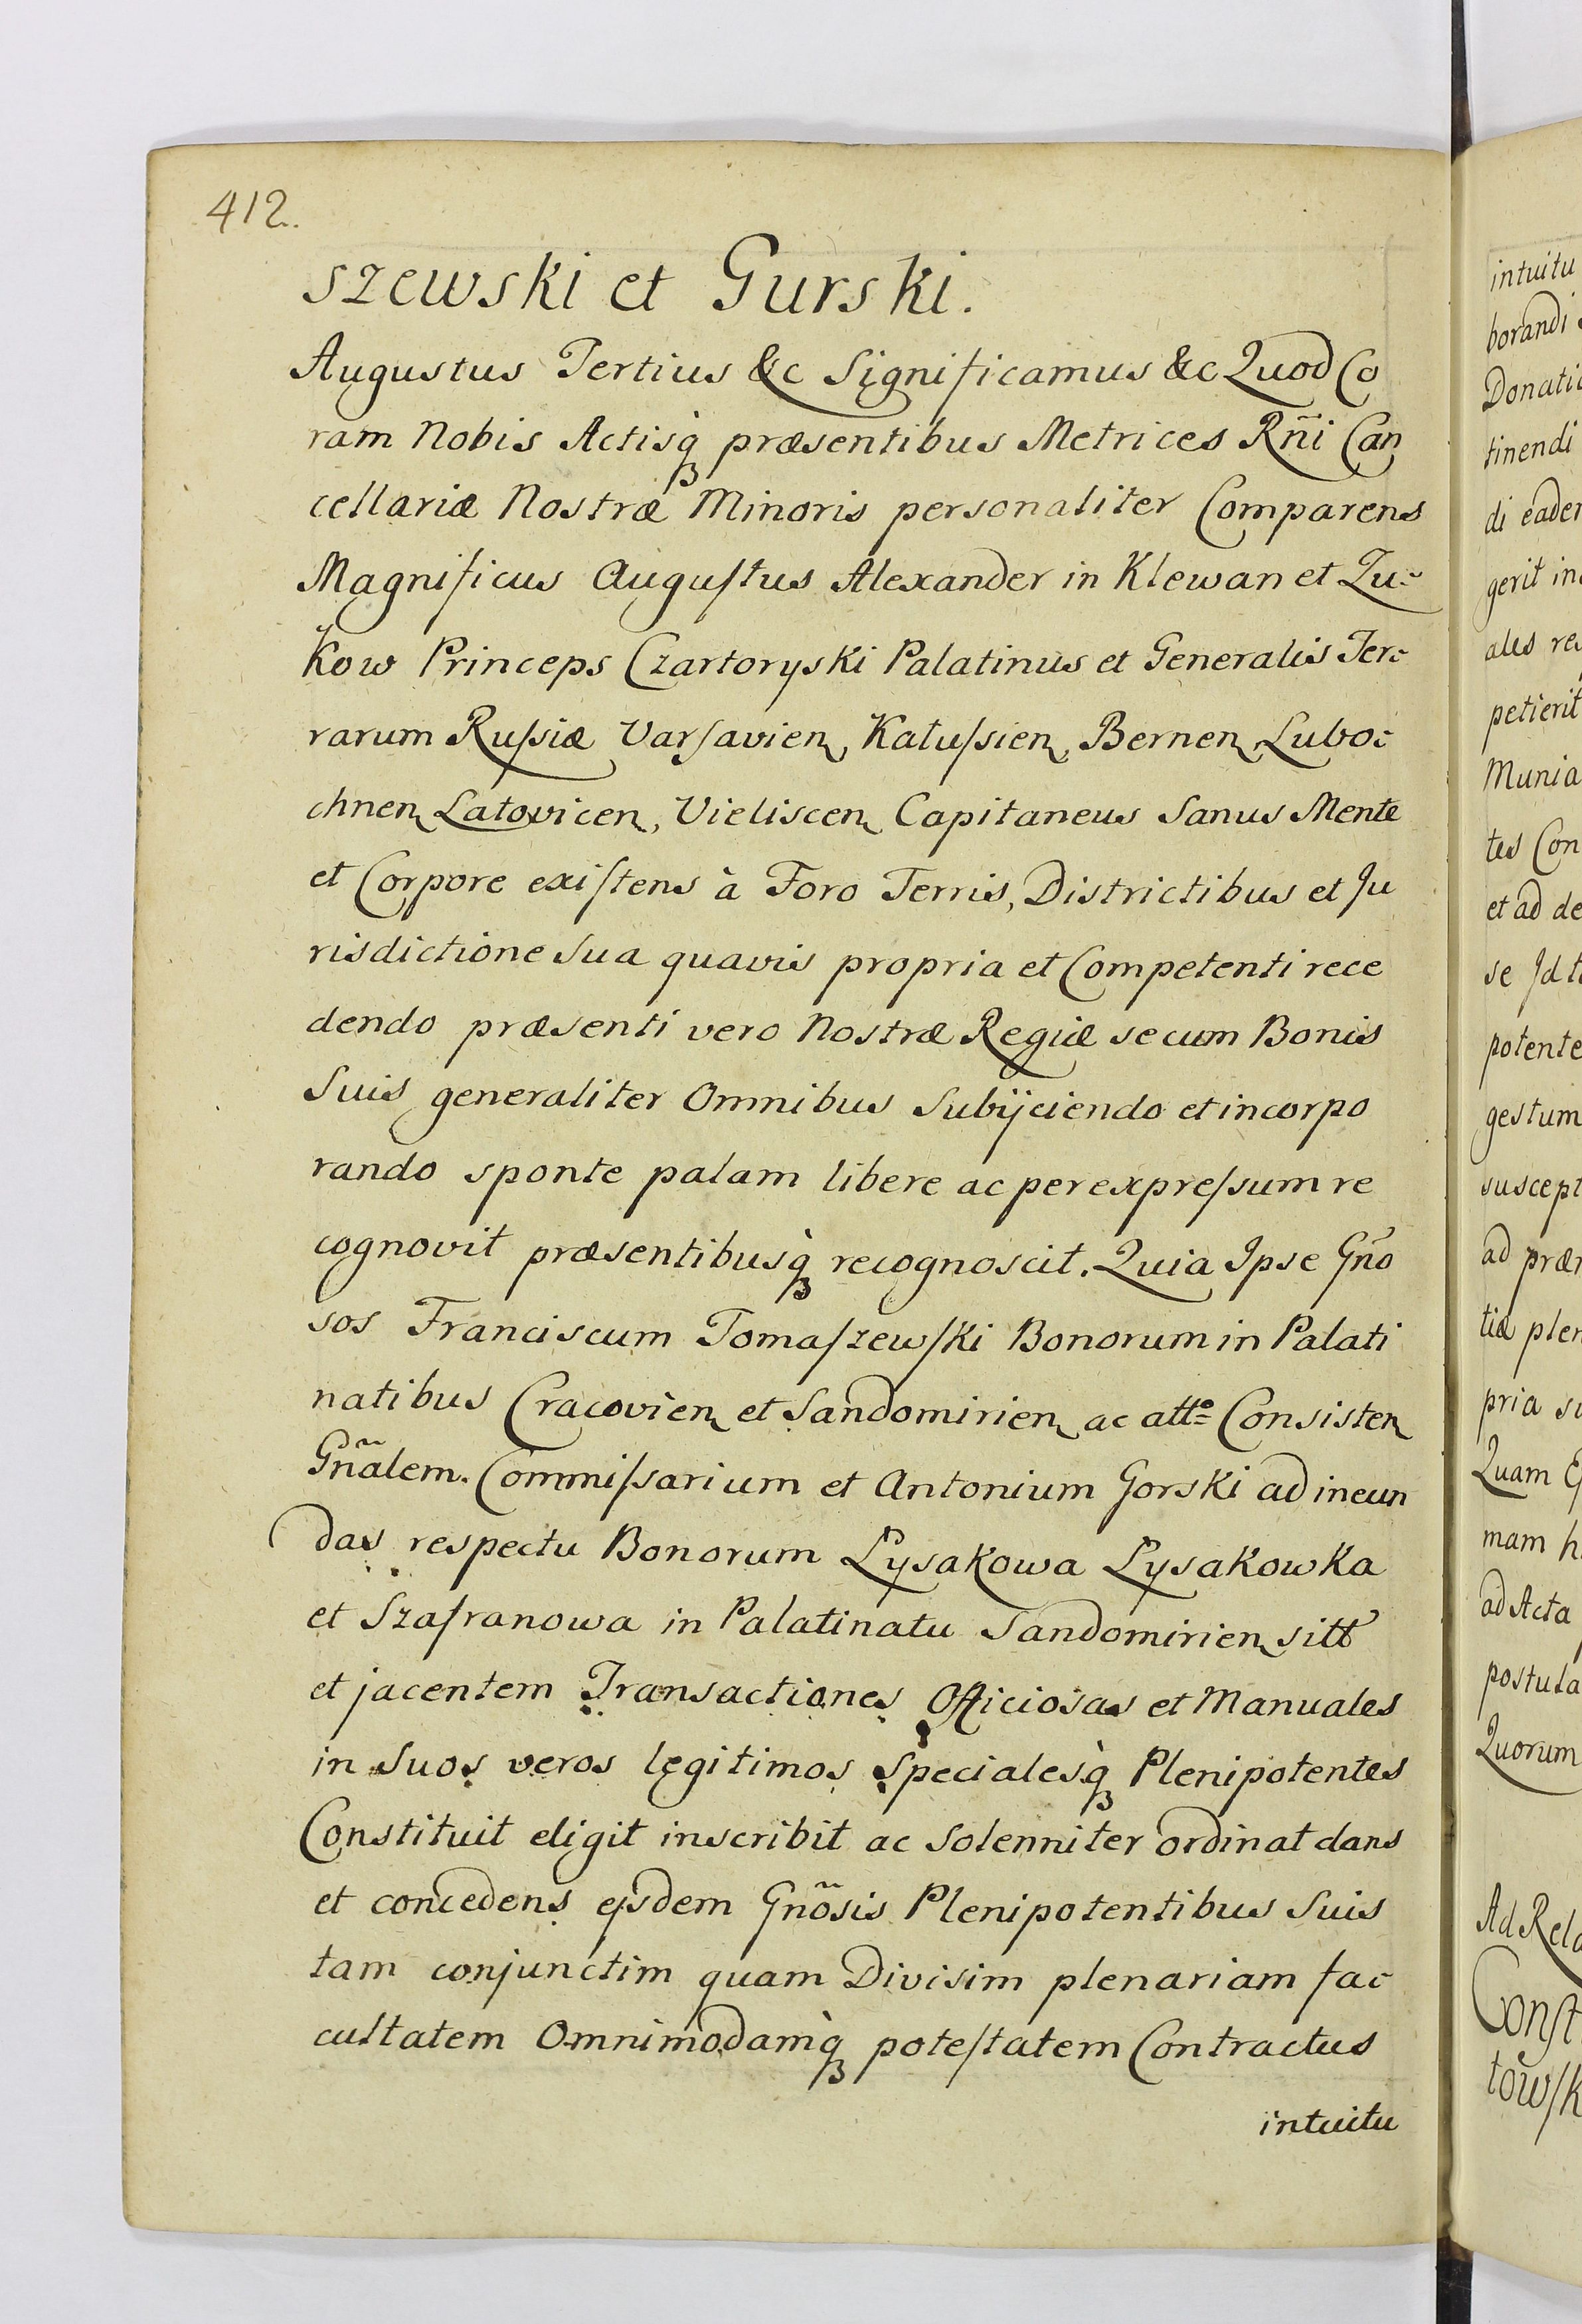 412.
szewski et Gurski.
Augustus Tertius &c Significamus &c Quod Co
ram Nobis Actisq̀ præsentibus Metrices Rñi Can
cellariæ Nostræ Minoris personaliter Comparens
Magnificus Auguſtus Alexander in Klewan et Zu=
kow Princeps Czartoryski Palatinus et Generalis Ter=
rarum Ruſsiæ Varſavien, Kaluſsien, Bernen, Lubo=
chnen Latovicen, Vieliscen Capitaneus Sanus Mente
et Corpore exiſtens à Foro Terris, Districtibus et Ju
risdictione Sua quavis propria et Competenti rece
dendo præsenti vero Nostræ Regiæ se cum Bonis
Suis generaliter Omnibus Subijciendo et incorpo
rando sponte palam libere ac per expreſsum re
cognovit præsentibusq̀ recognoscit. Quia Ipse Gño
sos Franciscum Tomaſzewſki Bonorum in Palati
natibus Cracovien et Sandomirien ac atto= Consisten
Gñalem. Commiſsarium et Antonium Gorski ad ineun
das respectu Bonorum Lysakowa Lysakowka
et Szafranowa in Palatinatu Sandomirien sitt
et jacentem Transactiones Officiosas et Manuales
in Suos veros legitimos Specialesq̀ Plenipotentes
Constituit eligit inscribit ac Solenniter ordinat dans
et concedens ejsdem Gñosis Plenipotentibus Suis
tam conjunctim quam Divisim plenariam fa=
cultatem Omnimodamq̀ poteſtatem Contractus
intuitu
intuitu
borandi
Donati
tinendi
di eade
gerit in
ales re
petierit
Munia
tes Con
et ad de
se Id t
potente
gestum
suscept
ad præ
tia plen
pria s
Quam
mam h
ad Acta
postula
Quorum
Ad Rela
Conſt
towſk